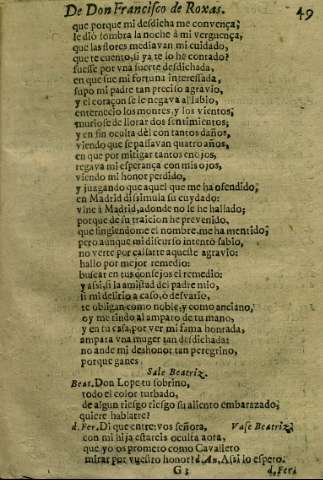 De Don Francisco de Roxas. 49
que porque mi desdicha me convença,
le dió sombra la noche à mi verguença,
que las flores mediavan mi cuidado,
que te cuento, si ya te lo he contado?
fuesse por vna suerte desdichada,
en que fue mi fortuna interessada,
supo mi padre tan preciso agravio,
y el coraçon se le negava al labio,
enternecio los montes, y los vientos,
muriose de llorar dos sentimientos;
y en fin oculta dèl con tantos daños,
viendo que se passavan quatro años,
en que por mitigar tantos enojos,
regava mi esperança con mis ojos,
viendo mi honor perdido,
y juzgando que aquel que me ha ofendido,
en Madrid dissimula su cuydado:
vine à Madrid, adonde no le he hallado;
porque de su traicion he prevenido,
que fingiendome el nombre, me ha mentido;
pero aunque mi discurso intentò sabio,
no verte por callarte aqueste agravio:
hallo por mejor remedio:
buscar en tus consejos el remedio:
y assi, si la amistad del padre mio,
si mi delirio acaso, ò desvario,
te obligan como noble, y como anciano,
oy me rindo al amparo de tu mano,
y en tu casa, por ver mi fama honrada,
ampara vna muger tan desdichada:
no ande mi deshonor tan peregrino,
porque ganes
Sale Beatriz.
Beat. Don Lope tu sobrino,
todo el color turbado,
de algun riesgo riesgo su aliento embarazado,
quiere hablarte?
d. Fer. Di que entre; vos señora, Vase Beatriz.
con mi hija estareis oculta aora,
que yo os prometo como Cavallero
mirar por vuestro honor? d. An. Assi lo espero.
G 3 d. Fer.